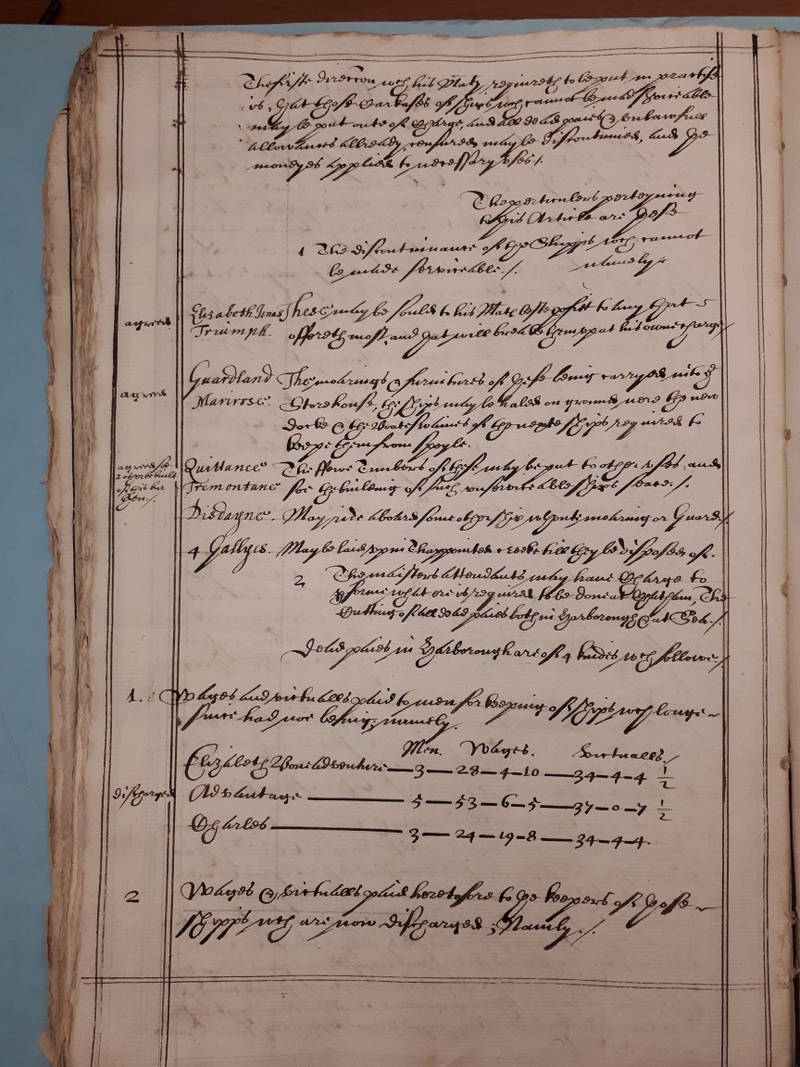 The firste direccon wch his Maty requireth to be put in practise
is, That those Carkases of ships wch cannot be made serviceable
may be put out of Charge, and all dead paies & unlawfull
allowances allready censured may be discontinued, and the
moneyes applied to necessary uses.
The perticulers perteyning
to this Article are these
1 The discontinuance of the Shipps wch cannot
be made serviceable./ namely
agreed Elizabeth Jonas These may be sould to his Mats beste profitt to any that
Triumph. offereth most, and that will breake them up at his owne charge/
agreed Guardland The moorings & furnitures of these being carryed into ye
Marirose. Storehouse, the ships may be haled on ground, nere the new
docke & the Boateswaines of the nexte ships required to
keepe them from spoyle.
agreed for Quittance The ffowr Timbers of these may be put to other uses, and
Tremontane for the building of such unserviceable ships spared./
Disdayne. May ride aboard some other ship without mooring or Guard./
4 Gallyes. May be laid up in Th'appointed creeke till they be disposed of.
2 The maisters attendants may have Charge to
pforme what ere is required to be done at Chatham, The
Cutting of all dead paies both in Harborough & at Sea./
Dead paies in Harborough are of 4 kindes wch followe./
1. Wages and victualls paid to men for keeping of ships wch longe
since had noe being; namely.
Men. Wages. Victualls./
Elizabeth Bonadventure — 3 — 28 — 4 — 10 — 34 — 4 — 4 1/2
discharged Advantage — 5 — 53 — 6 — 5 — 37 — 0 — 7 1/2
Charles — 3 — 24 — 19 — 8 — 34 — 4 — 4.
2 Wages & victualls paid heretofore to the keepers of those
shipps wch are now discharged; Namly./